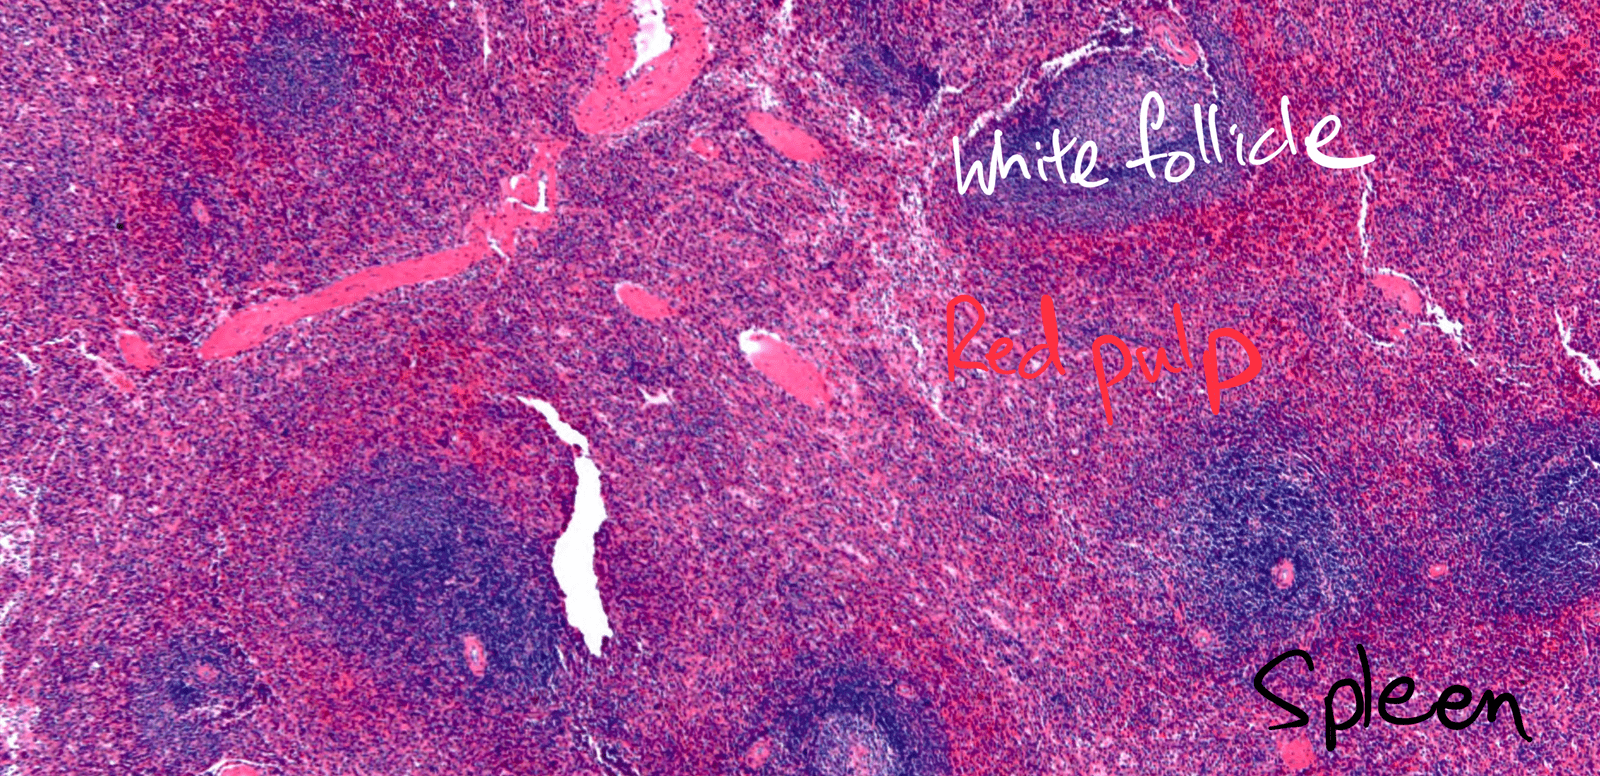 White follicle
Red pulp
Spleen